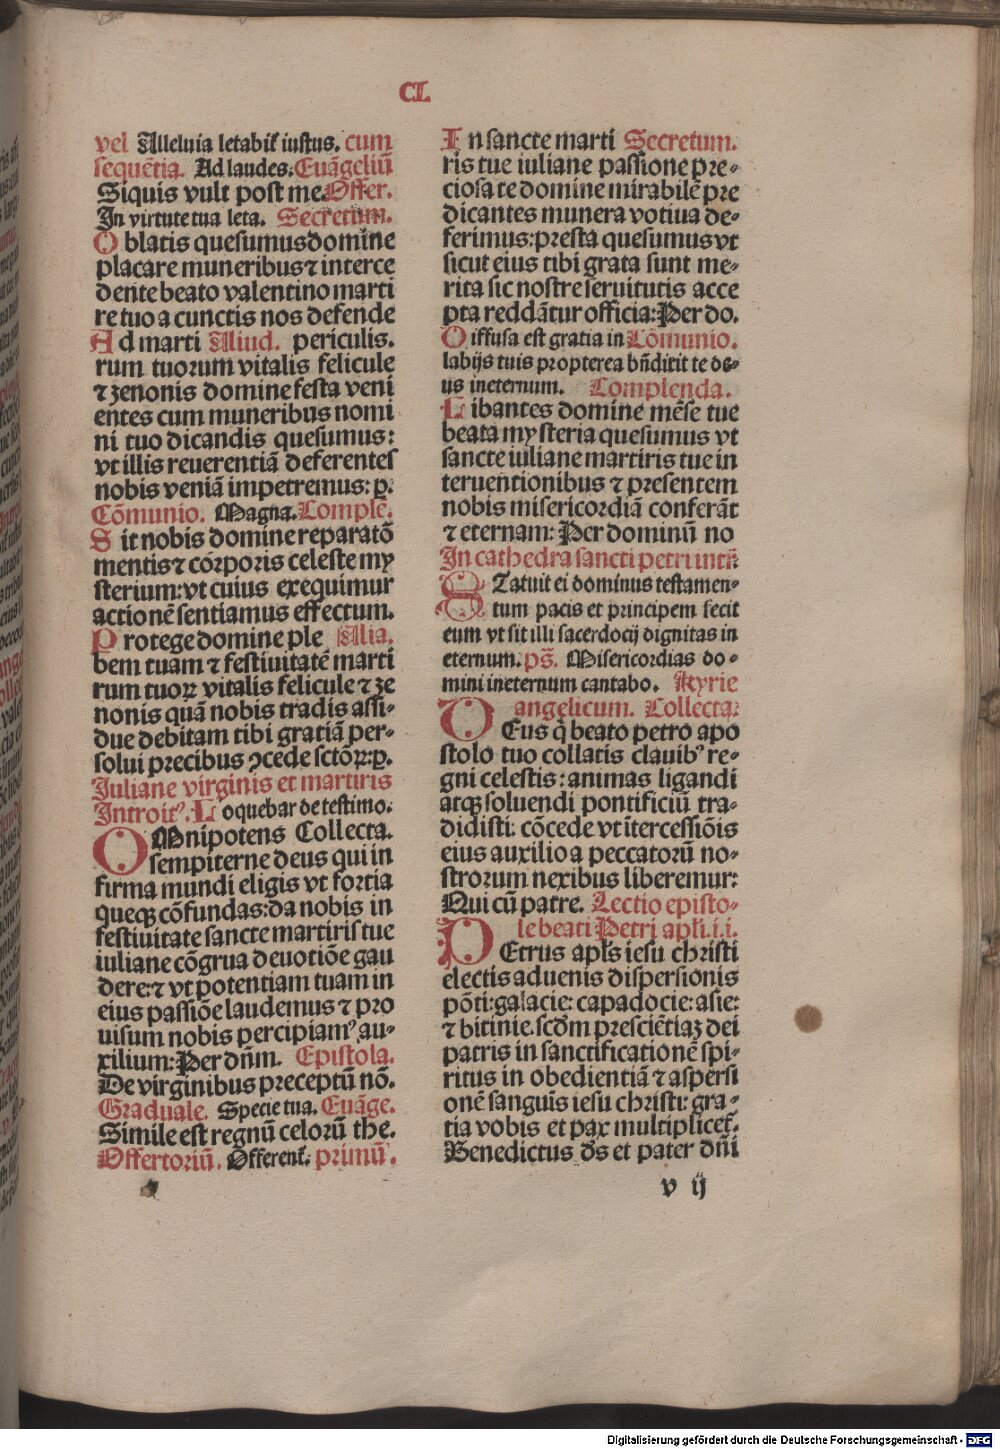 CL
vel Alleluia letabit̃ iustus. cum
sequẽtia. Ad laudes. Euãgeliũ
Siquis vult post me. Offer.
In virtute tua leta. Secretum.
Oblatis quesumus domine
placare muneribus ⁊ interce
dente beato valentino marti
re tuo a cunctis nos defende
Ad marti Aliud. periculis.
rum tuorum vitalis felicule
⁊ zenonis domine festa veni
entes cum muneribus nomi
ni tuo dicandis quesumus:
vt illis reuerentiã deferentes
nobis veniã impetremus: p.
Cõmunio. Magna. Complẽ.
Sit nobis domine reparatõ
mentis ⁊ corporis celeste my
sterium: vt cuius exequimur
actionẽ sentiamus effectum.
Protege domine ple Alia.
bem tuam ⁊ festiuitatẽ marti
rum tuoꝝ vitalis felicule ⁊ ze
nonis quã nobis tradis assi-
due debitam tibi gratiã per-
solui precibus ↄcede sctõꝝ: p.
Juliane virginis et martiris
Introitꝰ. Loquebar de testimo.
OMnipotens Collecta.
sempiterne deus qui in
firma mundi eligis vt fortia
queqꝫ cõfundas: da nobis in
festiuitate sancte martiris tue
iuliane cõgrua deuotiõe gau
dere: ⁊ vt potentiam tuam in
eius passiõe laudemus ⁊ pro
uisum nobis percipiamꝰ au-
xilium: Per dñm. Epistola.
De virginibus preceptũ nõ.
Graduale. Specie tua. Euãge.
Simile est regnũ celorũ the.
Offertoriũ. Offerent̃. primũ.
In sancte marti Secretum.
ris tue iuliane passione pre-
ciosa te domine mirabilẽ pre
dicantes munera votiua de-
ferimus: presta quesumus vt
sicut eius tibi grata sunt me-
rita sic nostre seruitutis acce
pta reddãtur officia: Per do.
Diffusa est gratia in Cõmunio.
labijs tuis propterea bñdixit te de-
us ineternum. Complenda.
Libantes domine mẽse tue
beata mysteria quesumus vt
sancte iuliane martiris tue in
teruentionibus ⁊ presentem
nobis misericordiã conferãt
⁊ eternam: Per dominũ no
In cathedra sancti petri intr̃.
STatuit ei dominus testamen-
tum pacis et principem fecit
eum vt sit illi sacerdocij dignitas in
eternum. ps̃. Misericordias do-
mini ineternum cantabo. Kyrie
angelicum. Collecta:
DEus q̃ beato petro apo
stolo tuo collatis clauibꝰ re-
gni celestis: animas ligandi
atqꝫ soluendi pontificiũ tra-
didisti: cõcede vt ĩtercessiõis
eius auxilio a peccatorũ no-
strorum nexibus liberemur:
Qui cũ patre. Lectio episto-
le beati Petri apl̃i. i. i.
PEtrus apl̃s iesu christi
electis aduenis dispersionis
põti: galacie: capadocie: asie:
⁊ bitinie. scdm̃ presciẽtiaꝫ dei
patris in sanctificationẽ spi-
ritus in obedientiã ⁊ aspersi
onẽ sanguĩs iesu christi: gra-
tia vobis et pax multiplicet̃.
Benedictus ds̃ et pater dñi
v ij
Digitalisierung gefördert durch die Deutsche Forschungsgemeinschaft - DFG